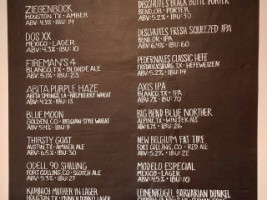 ZIEGENBOCK
HOUSTON, TX - AMBER
ABV: 4.9% - IBU:
DOS XX
MEXICO - LAGER
ABV: 4.3% - IBU:
FIREMAN'S 4
BLANCO, TX - BLONDE ALE
ABV: 5.1% - IBU:
ABITA PURPLE HAZE
ABITA SPRINGS, LA - RASPBERRY WHEAT
ABV: 4.2% - IBU:
BLUE MOON
GOLDEN, CO - BELGIAN STYLE
ABV: 5.4% - IBU: 9
THIRSTY GOAT
AUSTIN, TX - AMBER ALE
ABV: 6.5% - IBU: 30
ODELL 90 SHILLING
FORT COLLINS, CO - SCOTCH ALE
ABV: 5.3% - IBU:
KARBACH MOTHER IN LAGER
HOUSTON, TX - DUNKEL LAGER
DESCHUTES BLACK BUTTE PORTER
BEND, OR - PORTER
ABV: 5.2% - IBU: 30
DESCHUTES FRESH SQUEEZED IPA
BEND, OR - IPA
ABV: 6.4% - IBU: 60
PEDERNALES CLASSIC HEFE
FREDERICKSBURG, TX - HEFEWEIZEN
ABV: 5.2% - IBU: 14
AXIS IPA
BLANCO, TX - IPA
ABV: 7% - IBU: 70
BIG BEND BLUE NORTHER
ALPINE, TX - WINTER ALE
NEW BELGIUM FAT TIRE
FORT COLLINS, CO - RED ALE
ABV: 5.2% - IBU: 22
MODELO ESPECIAL
MEXICO - LAGER
LEINENKUGEL BAVARIAN DUNKEL